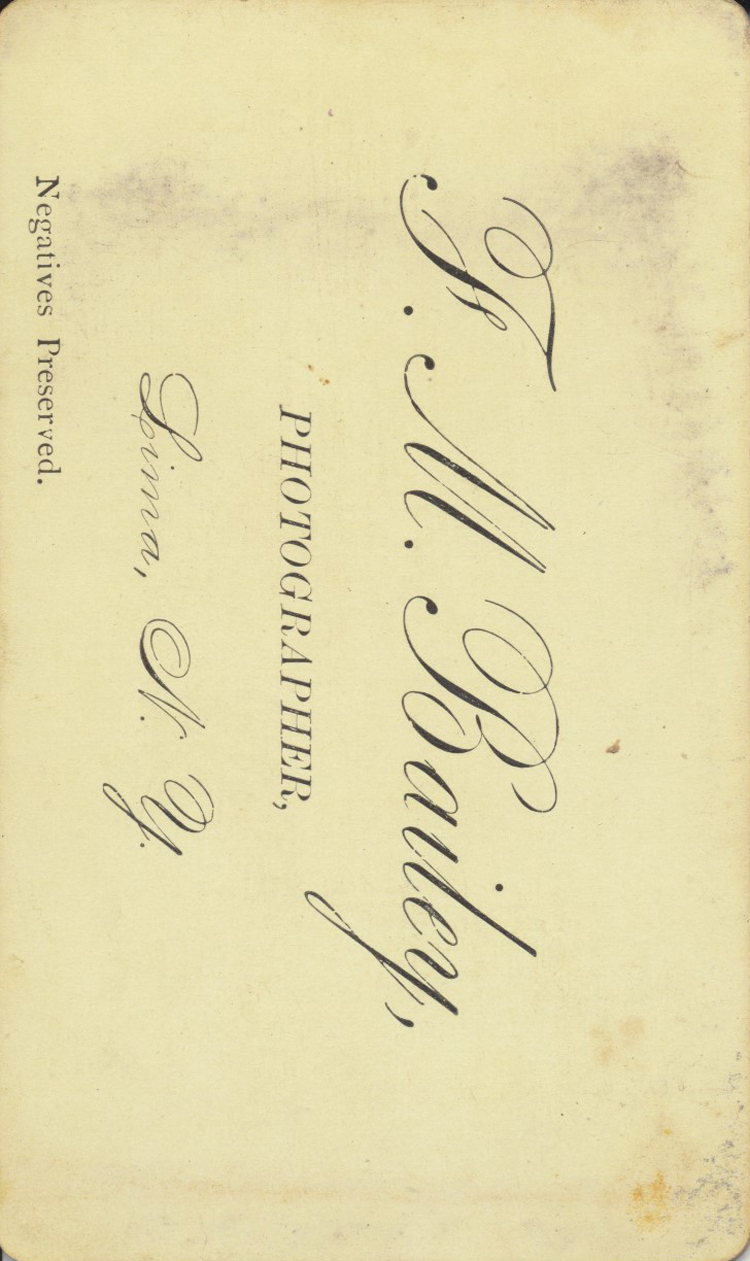 F. M. Bailey,
PHOTOGRAPHER,
Lima, N. Y.
Negatives Preserved.